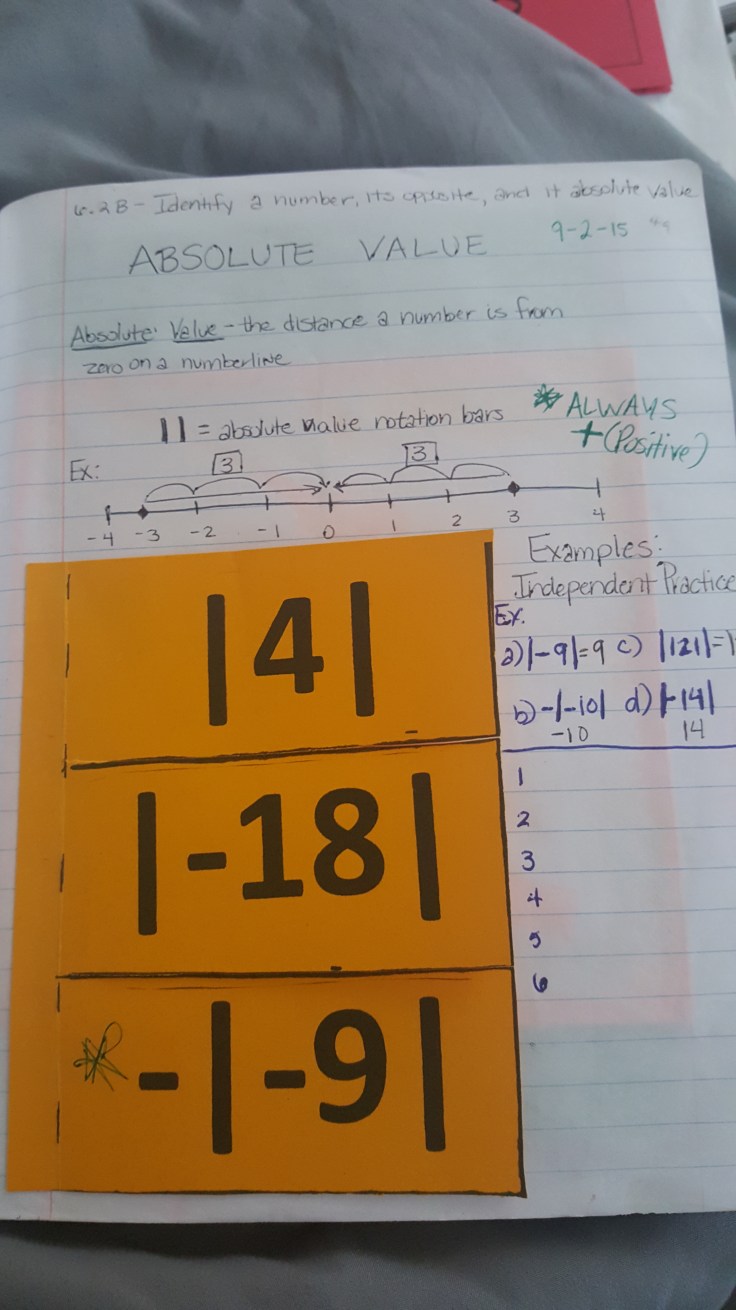 6.2B - Identify a number, its opposite, and it absolute value
ABSOLUTE VALUE
9-2-15
Absolute Value - the distance a number is from
zero on a numberline
| | = absolute value notation bars
* ALWAYS
+ (Positive)
Ex:
3 3
-4 -3 -2 -1 0 1 2 3 4
Examples:
Independent Practice
Ex.
a) |-9| = 9 c) |121| = 1
b) -|-10| d) |-14|
-10 14
1
2
3
4
5
6
|4|
|-18|
* -|-9|